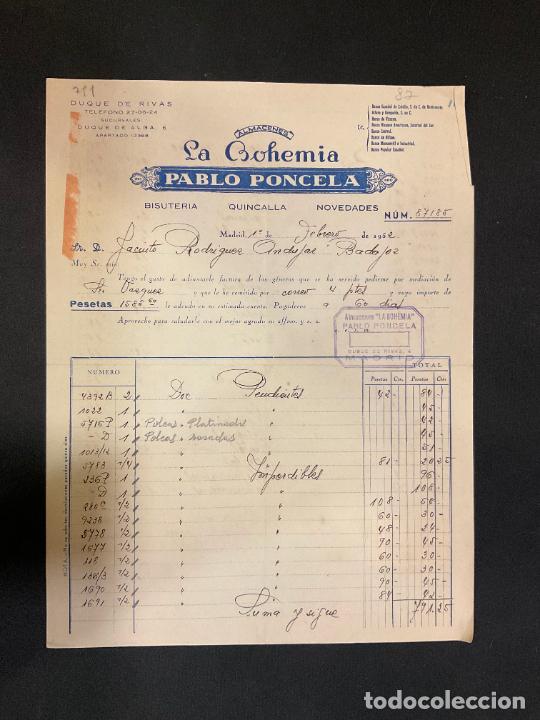 711
87
DUQUE DE RIVAS
TELEFONO 27-05-24
SUCURSALES:
DUQUE DE ALBA, 6
APARTADO 12368
Banco Español de Crédito
Banco de Vizcaya.
Banco Central.
Banco de Bilbao.
Banco Mercantil e Industrial.
Banco Popular Español.
ALMACENES
La Bohemia
PABLO PONCELA
BISUTERIA QUINCALLA NOVEDADES
NÚM. 57185
Madrid, 1º de Febrero de 1952
Sr. D. Jacinto Rodriguez Andujar Badajoz
Muy Sr. mío:
Tengo el gusto de adjuntarle factura de los géneros que se ha servido pedirme por mediación de
Sr. Vazquez y que le he remitido por correo 4 ptes y cuyo importe de
Pesetas le adeudo en su estimada cuenta. Pagaderos a 60 dias
Aprovecho para saludarle con el mejor agrado su affmo. y s. s.
Almacenes "LA BOHEMIA"
PABLO PONCELA
DUQUE DE RIVAS, 4
MADRID
NUMERO Pesetas Cts. TOTAL Pesetas Cts.
4392 B 2 Doc Pendientes 42 - 84 -
1022 1 " " 45 -
5715 P 1 Polcas Platinadas 45 -
- D 1 " Polcas rosadas 45 -
1013/12 1 " " 51 -
5783 1/4 " " 81 - 20 25
236 P 1 " Imperdibles 96 -
D 1 " " 108 -
280 C 1/2 " " 108 - 60 -
9238 1/2 " " 60 - 30 -
5778 1/2 " " 48 - 24 -
1577 1/2 " " 90 - 45 -
118 1/2 " " 60 - 30 -
1/2 " " 60 - 30 -
1590 1/2 " " 90 - 45 -
1591 1/2 " " 84 - 42 -
Suma y sigue 791.25
todocoleccion
todocoleccion.net